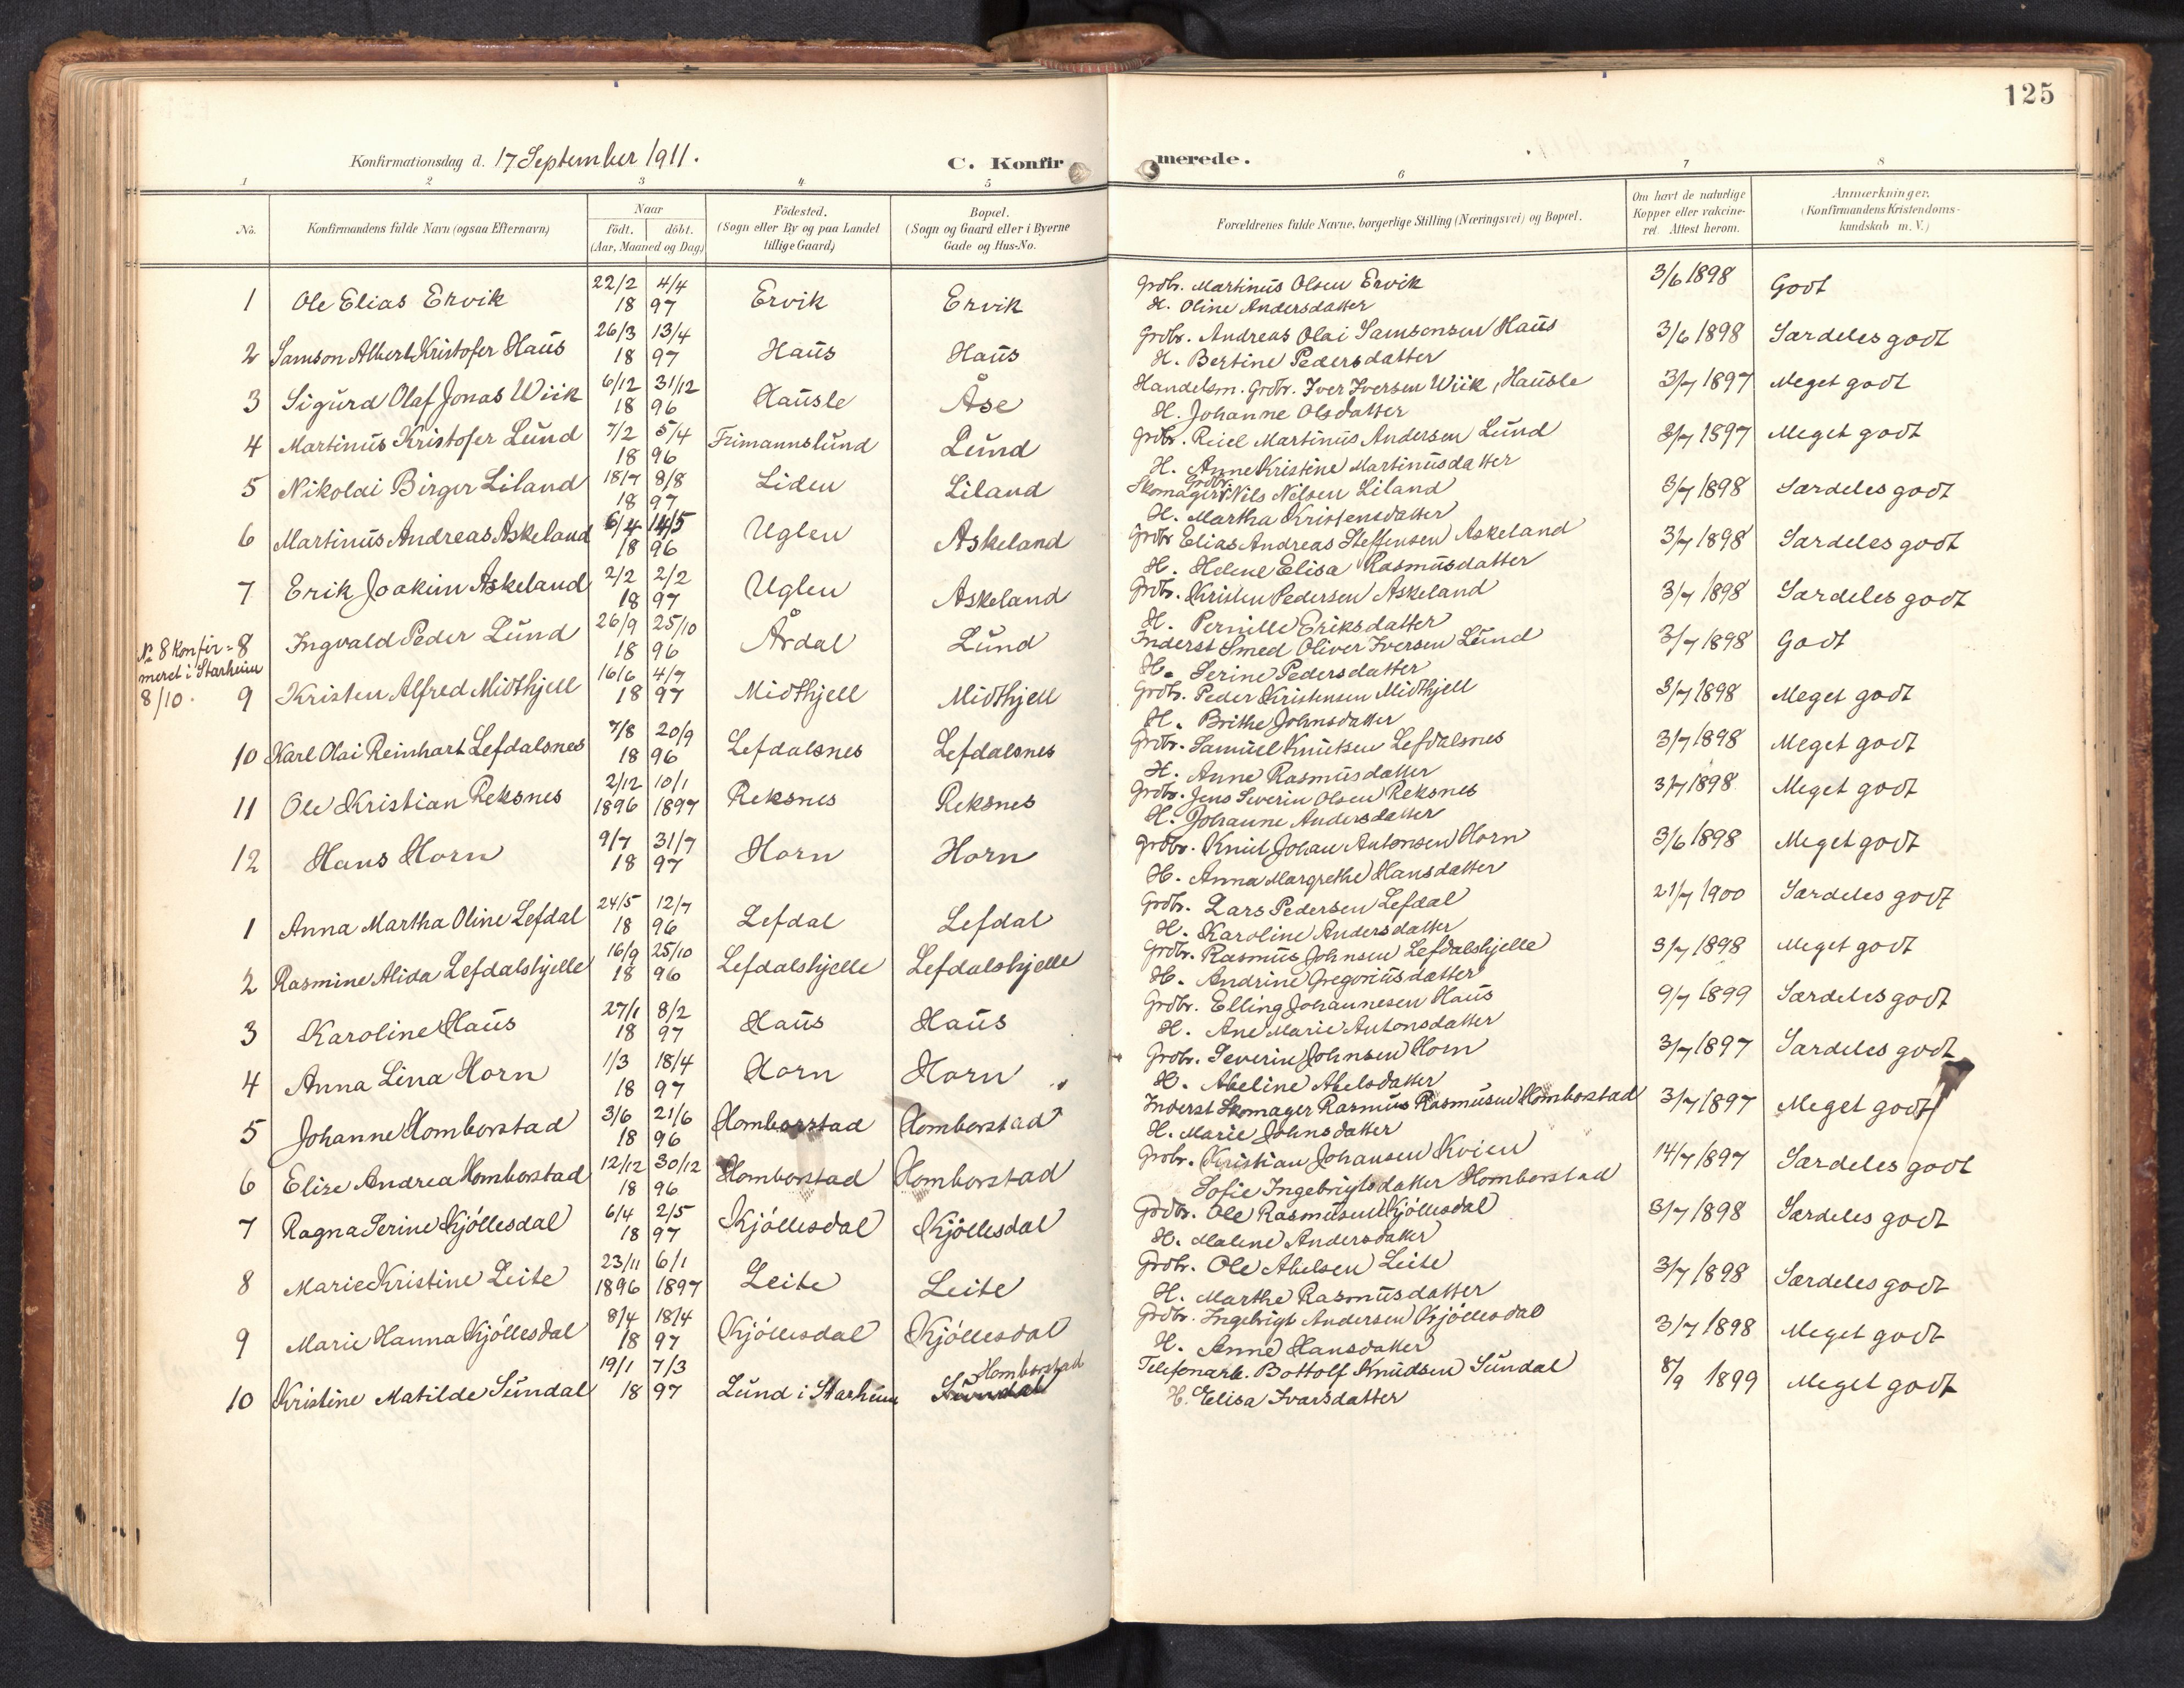 125
Konfirmationsdag d. 17 September 1911.
C. Konfirmerede.
1 2 3 4 5 6 7 8
No.
Konfirmandens fulde Navn (ogsaa Efternavn)
Naar
födt. döbt.
(Aar, Maaned og Dag)
Födested.
(Sogn eller By og paa Landet
tillige Gaard)
Bopæl.
(Sogn og Gaard eller i Byerne
Gade og Hus-No.
Forældrenes fulde Navne, borgerlige Stilling (Næringsvei) og Bopæl.
Om havt de naturlige
Kopper eller vakcine-
ret Attest herom.
Anmærkninger,
(Konfirmandens Kristendoms-
kundskab m. V.)
1 Ole Elias Ervik 22/2 4/4 18 97 Ervik Ervik Grdbr. Martinus Olsen Ervik 3/6 1898 Godt
H. Oline Andersdatter
2 Samson Albert Kristofer Haus 26/3 13/4 18 97 Haus Haus Grdbr. Andreas Olai Samsonsen Haus 3/6 1898 Særdeles godt
H. Bertine Pedersdatter
3 Sigurd Olaf Jonas Wiik 6/12 31/12 18 96 Hausle Åse Handelsm. Grdbr. Iver Iversen Wiik, Hausle 3/7 1897 Meget godt
H. Johanne Olsdatter
4 Martinus Kristofer Lund 7/2 5/4 18 96 Frimannslund Lund Grdbr. Reiel Martinus Andersen Lund 3/7 1897 Meget godt
H. Anne Kristine Martinusdatter
5 Nikolai Birger Liland 18/7 8/8 18 97 Liden Liland Skomager Grdbr. Nils Nilsen Liland 3/7 1898 Særdeles godt
H. Martha Kristensdatter
6 Martinus Andreas Askeland 6/4 14/5 18 96 Uglen Askeland Grdbr Elias Andreas Steffensen Askeland 3/7 1898 Særdeles godt
H. Helene Elisa Rasmusdatter
7 Erik Joakim Askeland 2/2 2/2 18 97 Uglen Askeland Grdbr. Kristen Pedersen Askeland 3/7 1898 Særdeles godt
H. Pernille Eriksdatter
No 8 konfir=
meret i Starheim
8/10.
8 Ingvald Peder Lund 26/9 25/10 18 96 Årdal Lund Inderst Smed Oliver Iversen Lund 3/7 1898 Godt
H. Serine Pedersdatter
9 Kristen Alfred Midthjell 16/6 4/7 18 97 Midthjell Midthjell Grdbr. Peder Kristensen Midthjell 3/7 1898 Meget godt
H. Brithe Johnsdatter
10 Karl Olai Reinhart Lefdalsnes 7/8 20/9 18 96 Lefdalsnes Lefdalsnes Grdbr. Samuel Knutsen Lefdalsnes 3/7 1898 Meget godt
H. Anne Rasmusdatter
11 Ole Kristian Reksnes 2/12 10/1 1896 1897 Reksnes Reksnes Grdbr. Jens Severin Olsen Reksnes 3/7 1898 Meget godt
H. Johanne Andersdatter
12 Hans Horn 9/7 31/7 18 97 Horn Horn Grdbr. Knut Johan Antonsen Horn 3/6 1898 Meget godt
H. Anna Margrethe Hansdatter
1 Anna Martha Oline Lefdal 24/5 12/7 18 96 Lefdal Lefdal Grdbr. Lars Pedersen Lefdal 21/7 1900 Særdeles godt
H. Karoline Andersdatter
2 Rasmine Alida Lefdalshjelle 16/9 25/10 18 96 Lefdalshjelle Lefdalshjelle Grdbr. Rasmus Johnsen Lefdalshjelle 3/7 1898 Meget godt
H. Andrine Gregoriusdatter
3 Karoline Haus 27/1 8/2 18 97 Haus Haus Grdbr. Elling Johannesen Haus 9/7 1899 Særdeles godt
H. Ane Marie Antonsdatter
4 Anna Lina Horn 1/3 18/4 18 97 Horn Horn Grdbr. Severin Johnsen Horn 3/7 1897 Særdeles godt
H. Abeline Abelsdatter
5 Johanne Homborstad 3/6 21/6 18 96 Homborstad Homborstad Inderst Skomager Rasmus Rasmusen Homborstad 3/7 1897 Meget godt
H. Marie Johnsdatter
6 Elise Andrea Homborstad 12/12 30/12 18 96 Homborstad Homborstad Grdbr. Kristian Johansen Kvien 14/7 1897 Særdeles godt
Sofie Ingebrigtsdatter Homborstad
7 Ragna Serine Kjöllesdal 6/4 2/5 18 97 Kjöllesdal Kjöllesdal Grdbr. Ole Rasmusen Kjöllesdal 3/7 1898 Særdeles godt
H. Malene Andersdatter
8 Marie Kristine Leite 23/11 6/1 1896 1897 Leite Leite Grdbr. Ole Abelsen Leite 3/7 1898 Særdeles godt
H. Marthe Rasmusdatter
9 Marie Hanna Kjöllesdal 8/4 18/4 18 97 Kjöllesdal Kjöllesdal Grdbr. Ingebrigt Andersen Kjöllesdal 3/7 1898 Meget godt
H. Anne Hansdatter
10 Kristine Matilde Sundal 19/1 7/3 18 97 Lund i Starheim Homborstad Sundal Telefonarb. Bottolf Knudsen Sundal 8/9 1899 Meget godt
H. Elisa Ivarsdatter